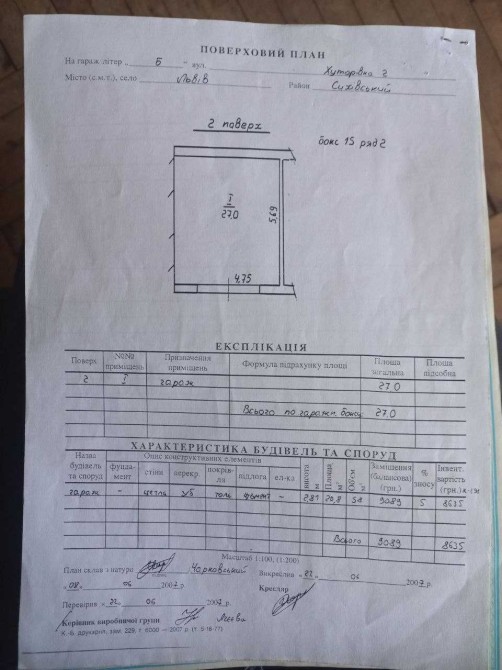 ПОВЕРХОВИЙ ПЛАН
На гараж літер „ Б " вул. Хуторівка 2
Місто (с.м.т.), село Львів Район Сихівський
2 поверх
бокс 15 ряд 2
I
27,0
5,69
4,75
ЕКСПЛІКАЦІЯ
Поверх №№ приміщень Призначення приміщень Формула підрахунку площі Площа загальна Площа підсобна
2 I гараж 27.0
Всього по гаражн. боксу 27.0
ХАРАКТЕРИСТИКА БУДІВЕЛЬ ТА СПОРУД
Назва будівель та споруд Опис конструктивних елементів висота м Площа м² Об'єм м³ Заміщення (балансова) (грн.) % зносу Інвент. вартість (грн.)
фундамент стіни перекр. покрівля підлога ел-ка
гараж - цегла з/б толь цемент - 2.81 20,8 58 9089 5 8635
Всього 9089 8635
Масштаб 1:100, (1:200)
План склав з натури Чарковський Викреслив „ 22 " 06 2007 р.
„ 08 " 06 2007 р. Кресляр
Перевірив „ 22 " 06 2007 р.
Керівник виробничої групи